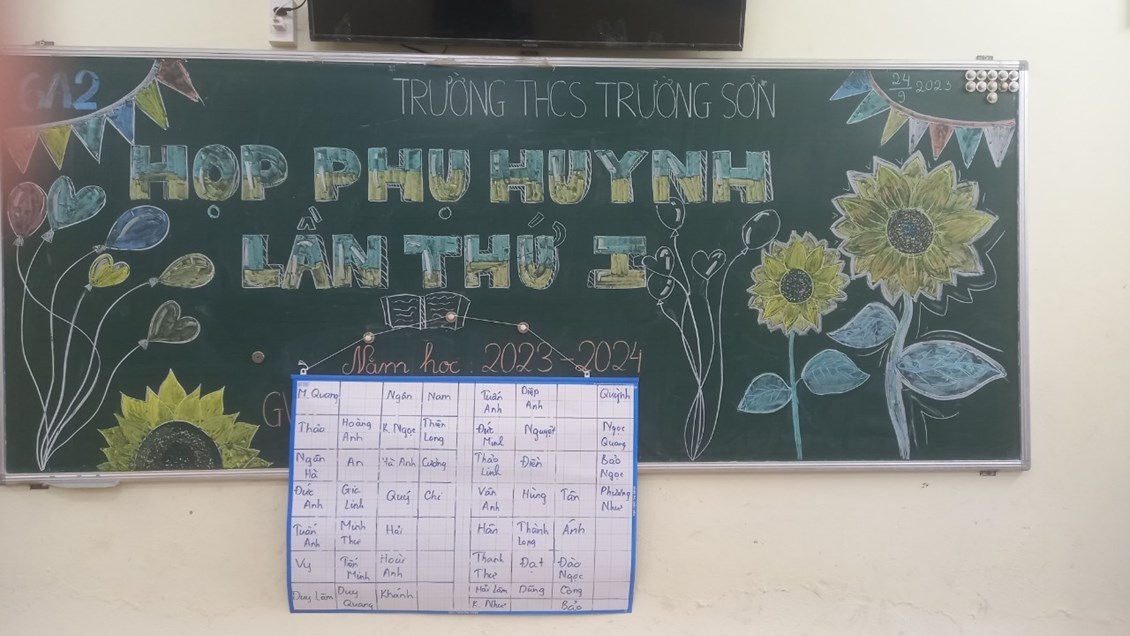 6A2
TRƯỜNG THCS TRƯỜNG SƠN
24/9 2023
HỌP PHỤ HUYNH
LẦN THỨ I
Năm học 2023-2024
M. Quang Ngân Nam Tuấn Anh Diệp Anh Quỳnh
Thảo Hoàng Anh K. Ngọc Thiên Long Đức Minh Nguyệt Ngọc Quang
Ngân Hà An Hà Anh Cường Thảo Linh Điền Bảo Ngọc
Đức Anh Gia Linh Quý Chi Vân Anh Hùng Tân Phương Như
Tuấn Anh Minh Thư Hải Hân Thành Long Ánh
Vy Tấn Minh Hoài Anh Thanh Thư Đạt Đào Ngọc
Duy Lâm Duy Quang Khánh Hải Lâm Dũng Công
K. Như Bảo